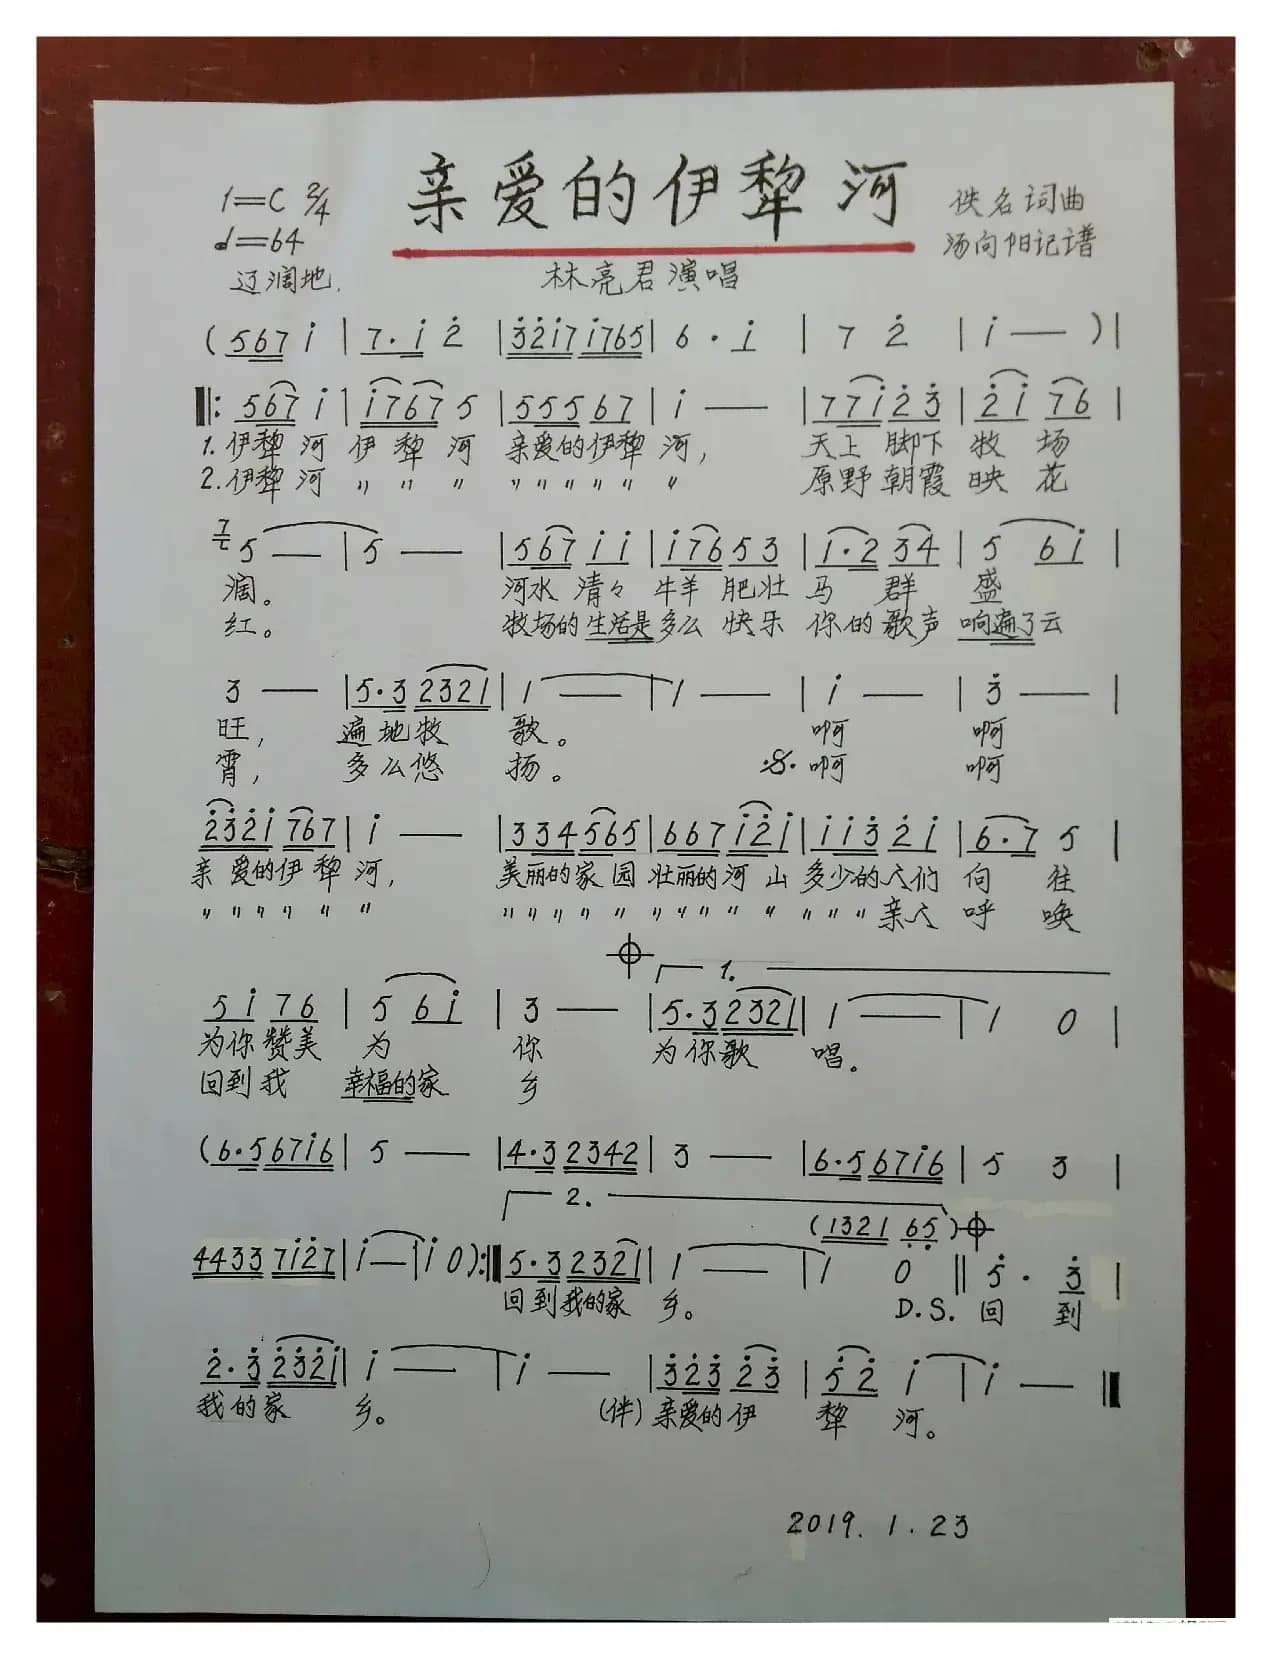 亲爱的伊犁河
1=C 2/4
♩=64
辽阔地.
佚名词曲
汤向阳记谱
林亮君演唱
( 567 i̇ | 7· i̇ 2̇ | 3̇2̇i̇7 i̇765 | 6 · i̇ | 7 2̇ | i̇ — ) |
‖: 567 i̇ | i̇767 5 | 555 67 | i̇ — | 77i̇ 2̇ 3̇ | 2̇i̇ 76 |
1. 伊犁 河 伊 犁 河 亲爱的伊犁 河, 天上 脚下 牧 场
2. 伊犁 河 〃 〃 〃 〃 〃 〃 〃 〃 〃 原野朝霞 映 花
7 5 — | 5 — | 567 i̇ i̇ | i̇76 53 | 1·2 34 | 5 6i̇ |
阔。 河水 清々 牛羊 肥壮 马 群 盛
红。 牧场的生活是多么 快乐 你的歌声 响遍了云
3 — | 5·3 2321 | 1 — | 1 — | i̇ — | 3̇ — |
旺, 遍地牧 歌。 啊 啊
霄, 多么悠 扬。 𝄋 啊 啊
2̇3̇2̇i̇ 767 | i̇ — | 334 565 | 667 i̇2̇i̇ | i̇i̇3̇ 2̇i̇ | 6·7 5 |
亲 爱的伊犁 河, 美丽的家 园 壮丽的河 山 多少的人们 向 往
〃 〃 〃 〃 〃 〃 〃 〃 〃 〃 〃 〃 〃 〃 〃 〃 〃 〃 亲人 呼 唤
𝄌 1.
5i̇ 76 | 5 6i̇ | 3 — | 5·3 2321 | 1 — | 1 0 |
为你赞美 为 你 为你歌 唱。
回到我 幸福的家 乡
(6·5 67i̇6 | 5 — | 4·3 2342 | 3 — | 6·5 67i̇6 | 5 3 |
2.
(1321 6̣5̣ ) 𝄌
4433 7i̇2̇7 | i̇ — | i̇ 0 ) :‖ 5·3 2321 | 1 — | 1 0 ‖ 5̇ · 3̇ |
回到我的家 乡。 D.S. 回 到
2̇·3̇ 2̇3̇2̇i̇ | i̇ — | i̇ — | 3̇2̇3̇ 2̇3̇ | 5̇2̇ i̇ | i̇ — ‖
我的家 乡。 (伴) 亲爱的伊 犁 河。
2019. 1. 23